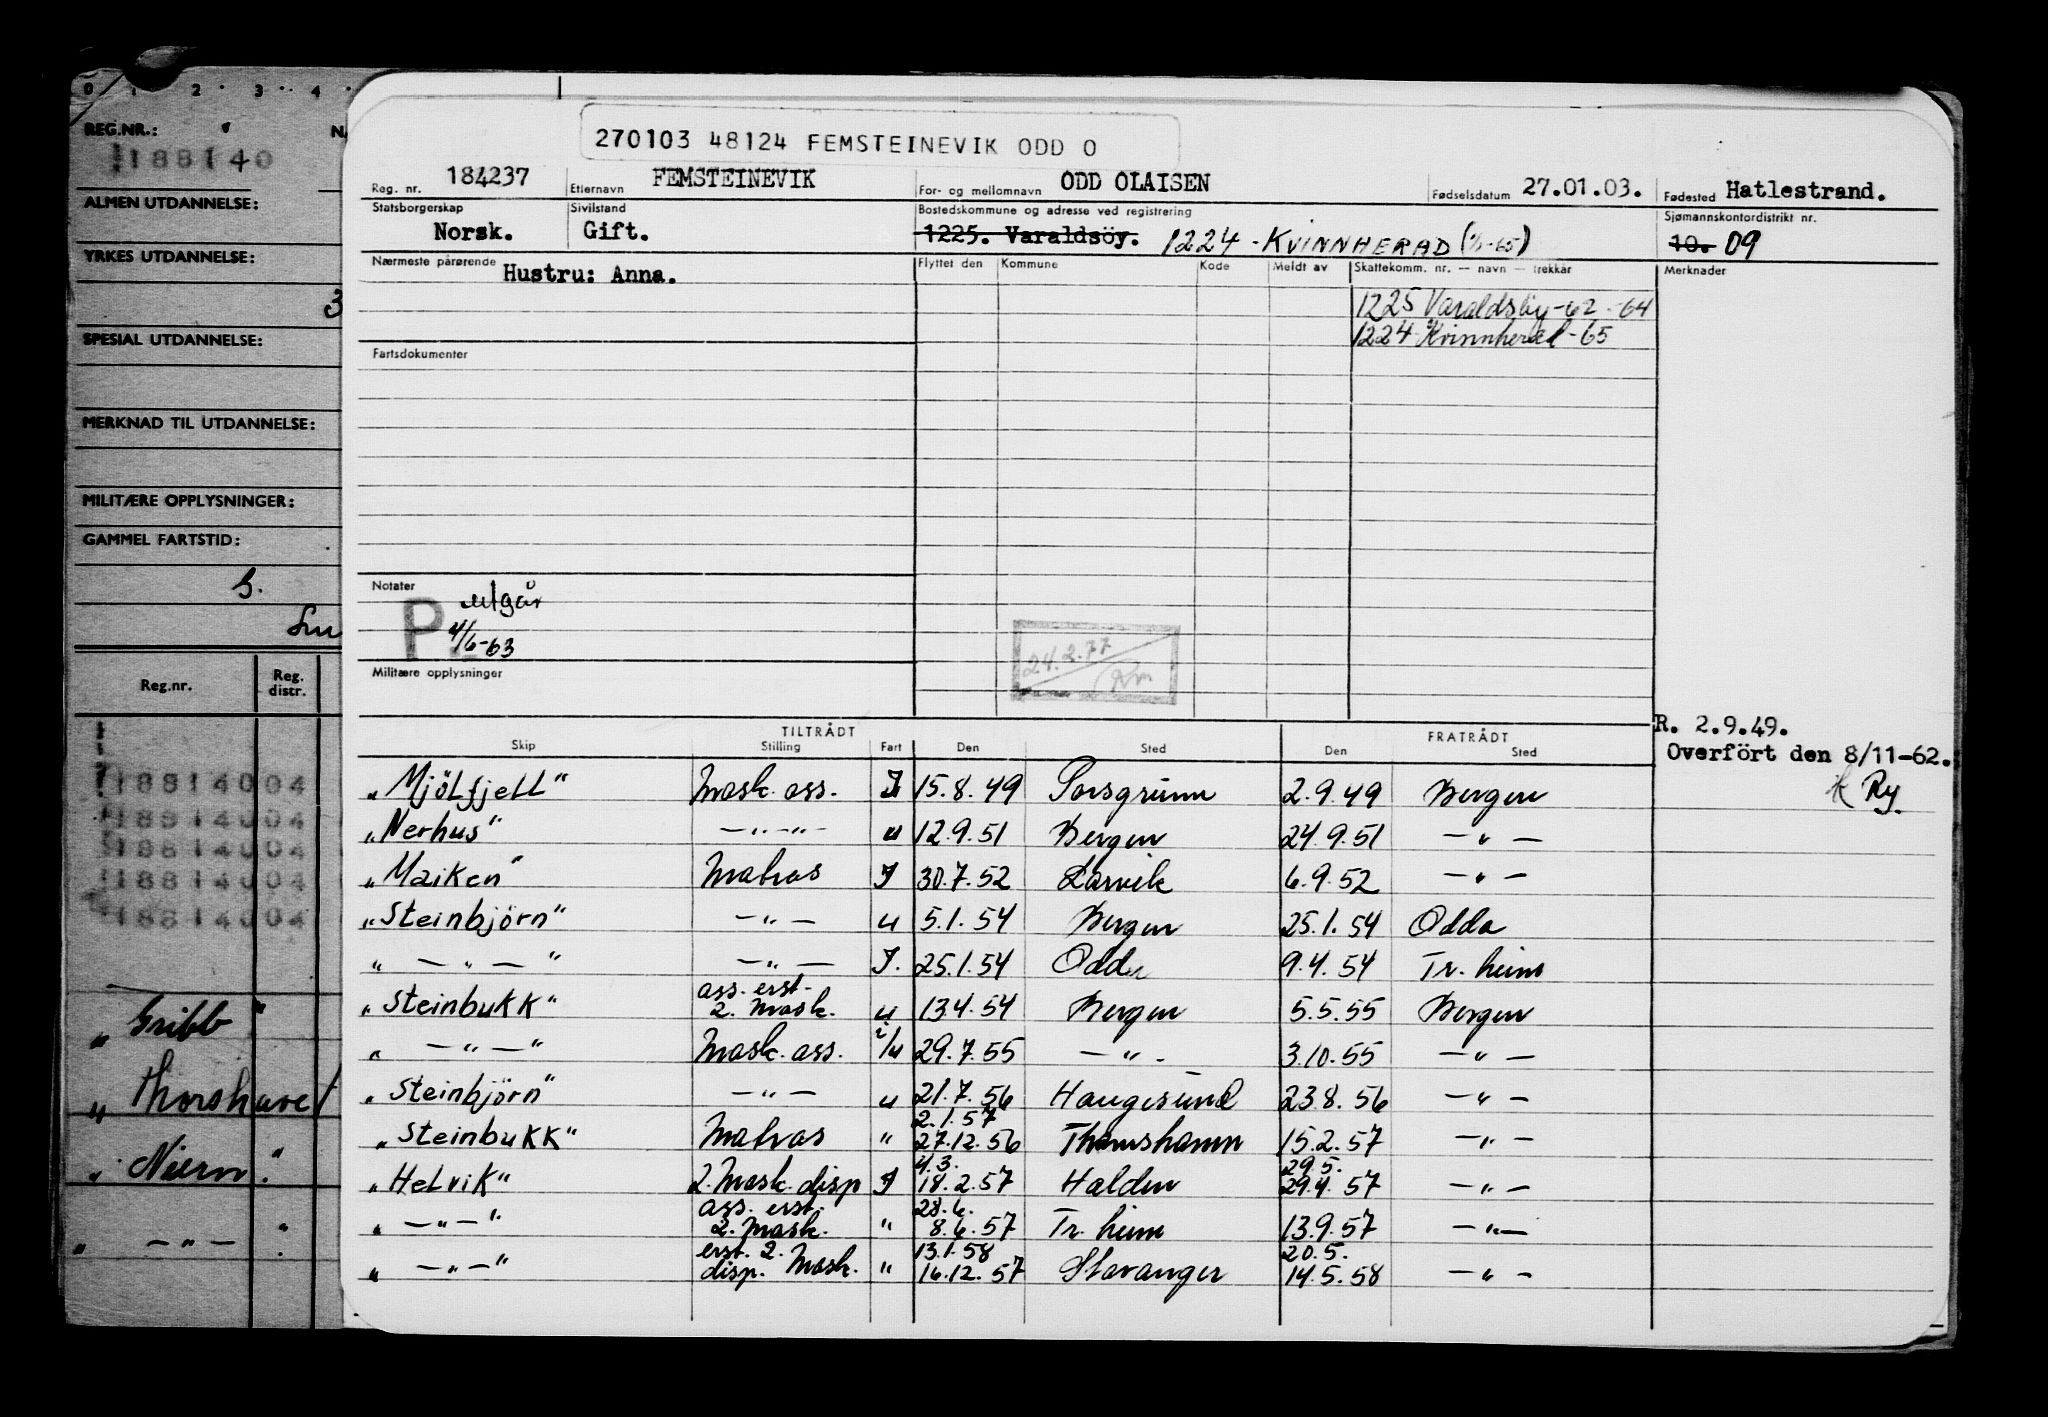 0 1 2 3 4
REG.NR.:
188140
ALMEN UTDANNELSE:
YRKES UTDANNELSE:
3
SPESIAL UTDANNELSE:
MERKNAD TIL UTDANNELSE:
MILITÆRE OPPLYSNINGER:
GAMMEL FARTSTID:
Reg.nr. Reg. distr.
188140 04
188140 04
188140 04
188140 04
188140 04
„ Gribb "
„ Thorshavet
„ Niern "
„ — „ — "
270103 48124 FEMSTEINEVIK ODD O
Reg. nr. 184237 Etternavn FEMSTEINEVIK For- og mellomnavn ODD OLAISEN Fødselsdatum 27.01.03. Fødested Hatlestrand.
Statsborgerskap Sivilstand Bostedskommune og adresse ved registrering Sjømannskontordistrikt nr.
Norsk. Gift. 1225. Varaldsöy. 1224 - KVINNHERAD (1/1-65) 10. 09
Nærmeste pårørende Hustru: Anna. Flyttet den Kommune Kode Meldt av Skattekomm. nr. — navn — trekkår Merknader
1225 Varaldsöy-62-64
1224 Kvinnherad-65
Fartsdokumenter
Notater
P utgår
4/6-63
24.2.77
Militære opplysninger
R. 2.9.49.
Overfört den 8/11-62.
Ry.
TILTRÅDT FRATRÅDT
Skip Stilling Fart Den Sted Den Sted
„Mjölfjell" Mask. ass. I 15.8.49 Porsgrunn 2.9.49 Bergen
„Nerhus" — „ — „ — u 12.9.51 Bergen 24.9.51 — „ —
„Maiken" Matros I 30.7.52 Larvik 6.9.52 — „ —
„Steinbjörn" — „ — u 5.1.54 Bergen 25.1.54 Odda
„ — „ — " — „ — I. 25.1.54 Odda 9.4.54 Tr. heim
„Steinbukk" ass. erst. 2. mask. u 13.4.54 Bergen 5.5.55 Bergen
„ — „ — " Mask. ass. i/u 29.7.55 — „ — 3.10.55 — „ —
„Steinbjörn" — „ — u 21.7.56 Haugesund 23.8.56 — „ —
2.1.57
„Steinbukk" Matros " 27.12.56 Thamshamn 15.2.57 — „ —
4.3. 29.5.
„Helvik" 2. Mask. disp I 18.2.57 Halden 29.4.57 — „ —
ass. erst. 28.6.
„ — „ — " 2. mask. " 8.6.57 Tr. heim 13.9.57 — „ —
erst. 2. 13.1.58 20.5.
„ — „ — " disp. Mask. " 16.12.57 Stavanger 14.5.58 — „ —